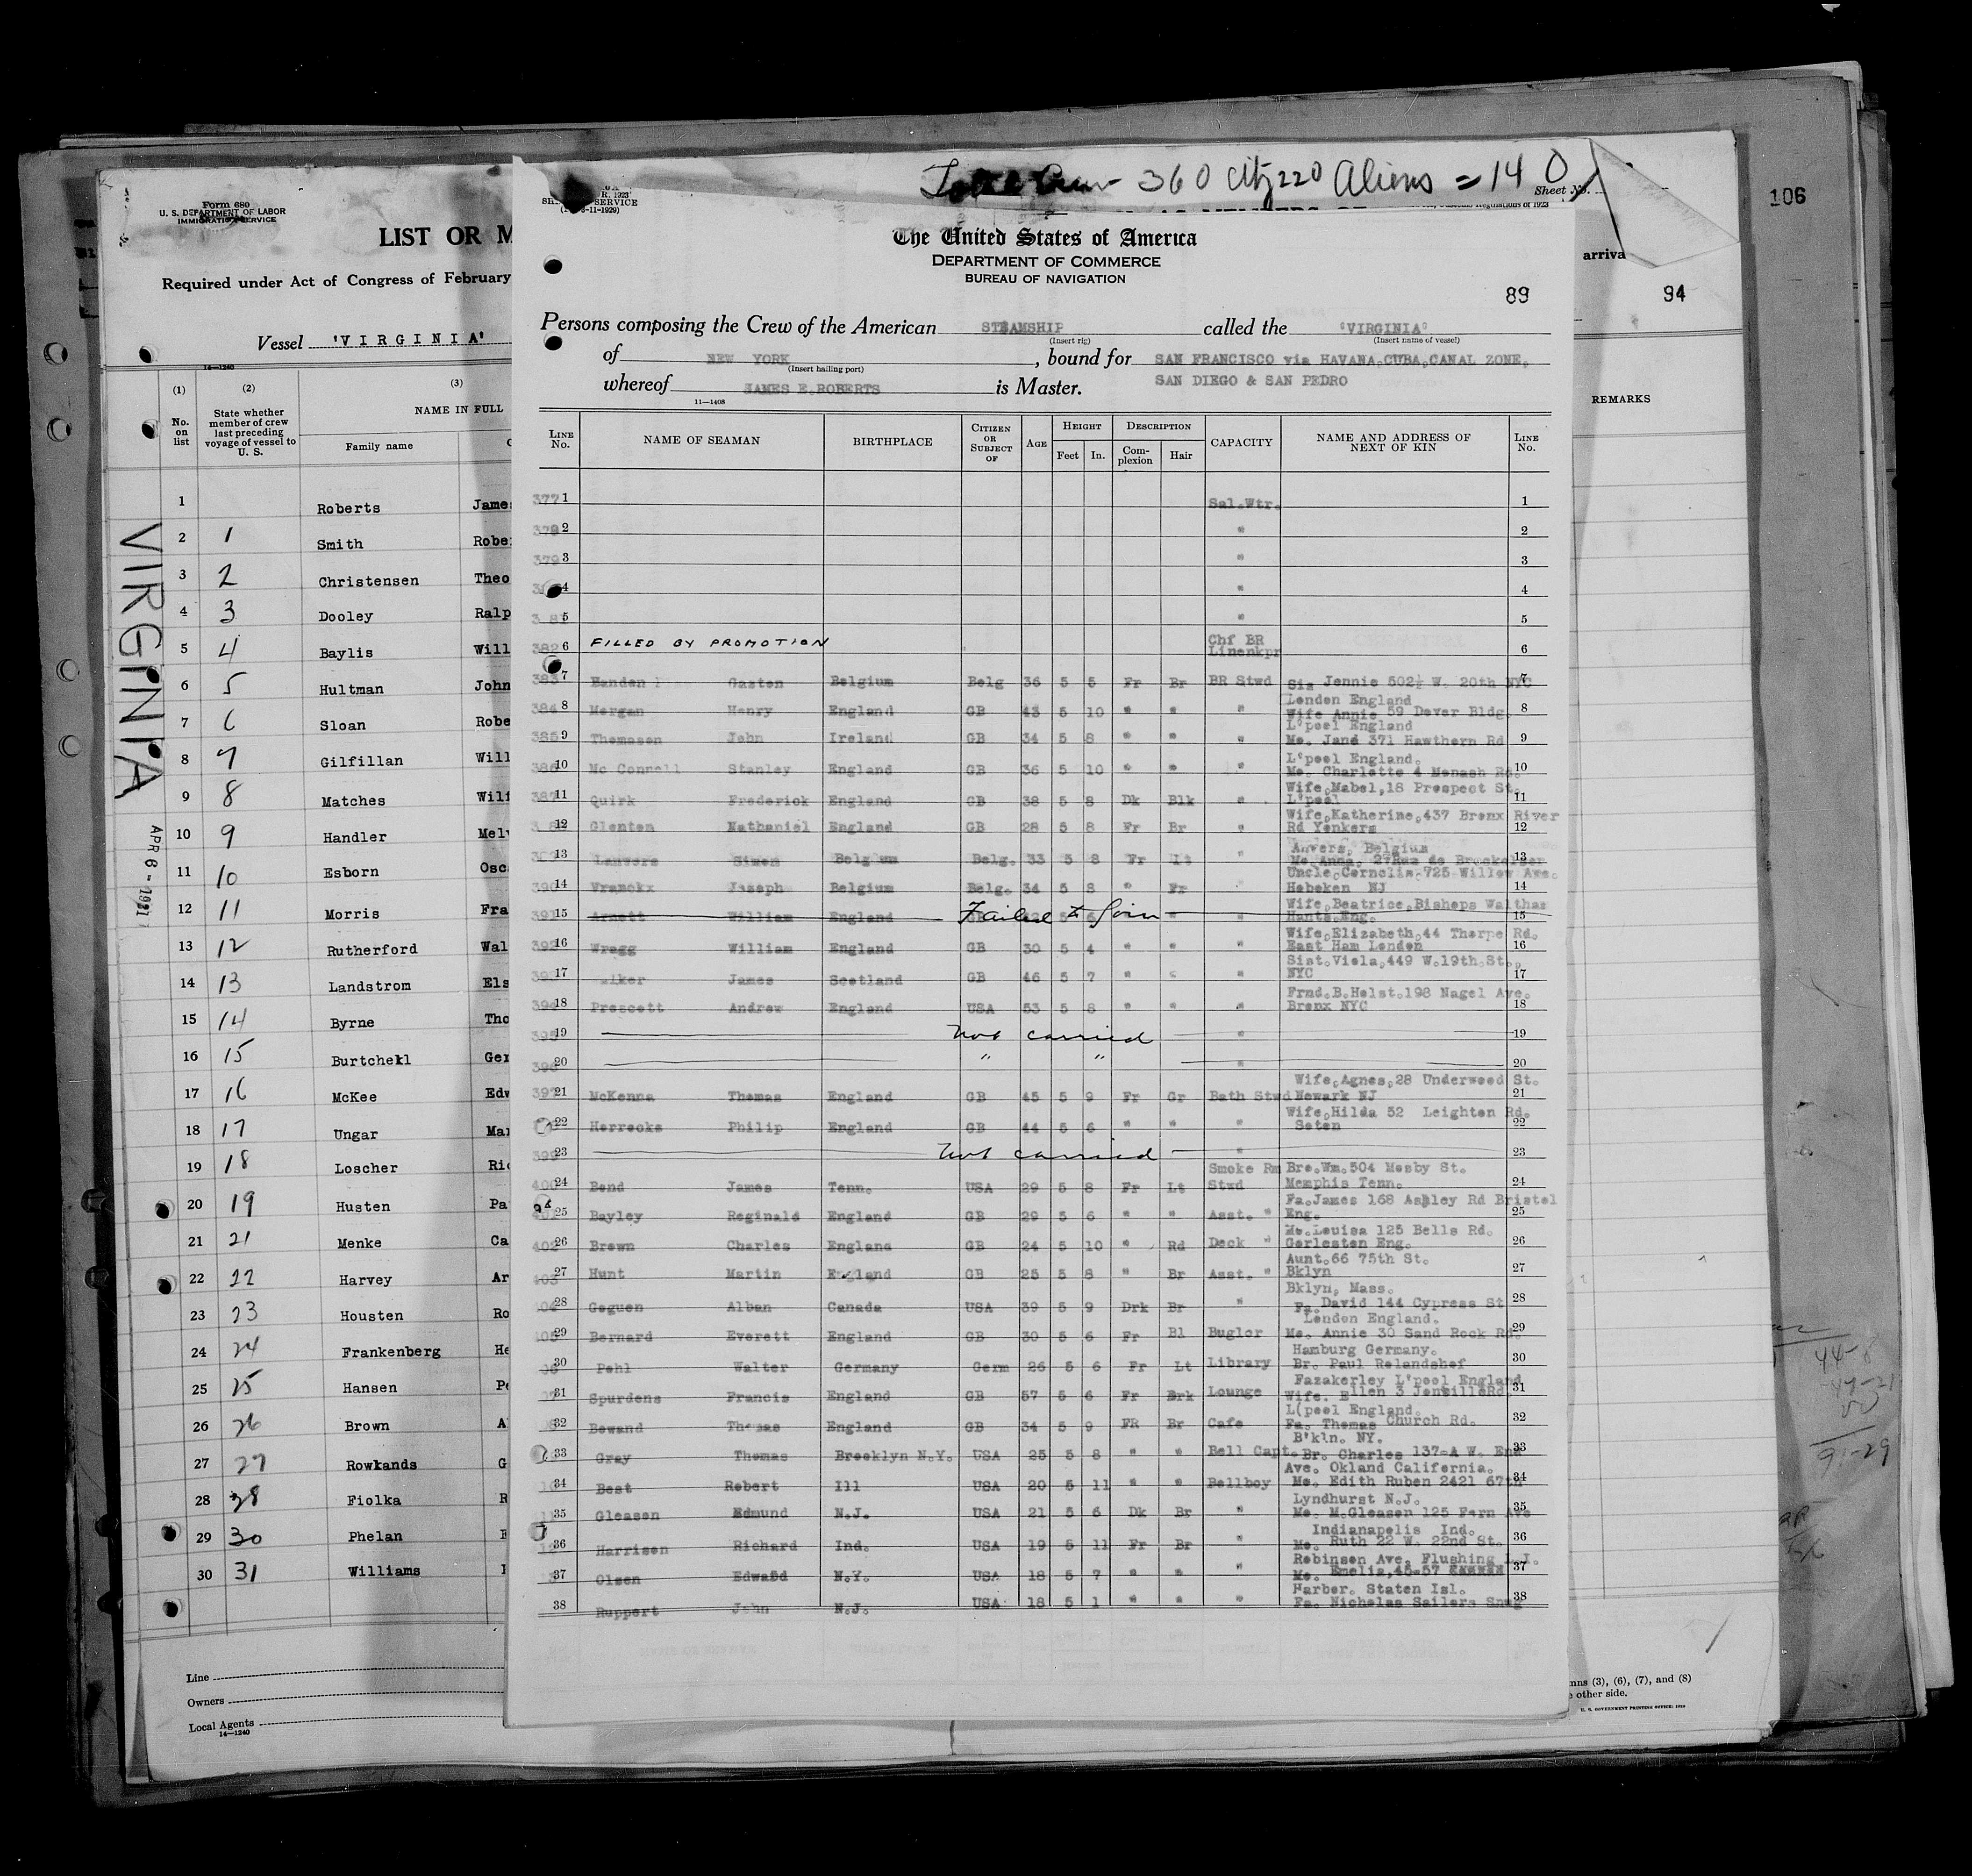 Form 680
U. S. DEPARTMENT OF LABOR
IMMIGRATION SERVICE
LIST OR M
Required under Act of Congress of February
Vessel 'VIRGINIA'
14—1240
(1) (2) (3)
No. on list
State whether member of crew last preceding voyage of vessel to U. S.
NAME IN FULL
Family name
1 Roberts James
2 1 Smith Robe
3 2 Christensen Theo
4 3 Dooley Ralp
5 4 Baylis Will
6 5 Hultman John
7 6 Sloan Robe
8 7 Gilfillan Will
9 8 Matches Wili
10 9 Handler Melv
11 10 Esborn Osc
12 11 Morris Fra
13 12 Rutherford Wal
14 13 Landstrom Els
15 14 Byrne Tho
16 15 Burtchell Ger
17 16 McKee Edw
18 17 Ungar Mar
19 18 Loscher Ric
20 19 Husten Pa
21 21 Menke Ca
22 22 Harvey Ar
23 23 Housten Ro
24 24 Frankenberg He
25 25 Hansen Pe
26 26 Brown A
27 27 Rowkands G
28 28 Fiolka R
29 30 Phelan
30 31 Williams
VIRGINIA
APR 6 - 1931
Line
Owners
Local Agents
14—1240
Crew 360 City 220 Aliens = 140
Sheet No.
R. 1923
SERVICE
3-11-1929)
The United States of America
DEPARTMENT OF COMMERCE
BUREAU OF NAVIGATION
89
Persons composing the Crew of the American STEAMSHIP called the 'VIRGINIA'
(Insert rig) (Insert name of vessel)
of NEW YORK, bound for SAN FRANCISCO via HAVANA,CUBA,CANAL ZONE,
(Insert hailing port)
whereof JAMES E.ROBERTS is Master. SAN DIEGO & SAN PEDRO
11—1408
LINE No. NAME OF SEAMAN BIRTHPLACE CITIZEN OR SUBJECT OF AGE HEIGHT Feet In. DESCRIPTION Complexion Hair CAPACITY NAME AND ADDRESS OF NEXT OF KIN LINE No.
377 1 Sal.Wtr. 1
378 2 " 2
379 3 " 3
4 " 4
5 " 5
382 6 FILLED BY PROMOTION Chf BR Linenkpr 6
383 7 Gaston Belgium Belg 36 5 5 Fr Br BR Stwd Sis Jennie 502½ W. 20th NYC 7
London England
384 8 Morgan Henry England GB 43 5 10 " " " Wife Annie 59 Dover Bldg. 8
L'pool England
385 9 Thomason John Ireland GB 34 5 8 " " " Mo. Jand 371 Hawthorn Rd 9
L'pool England.
386 10 Mc Connell Stanley England GB 36 5 10 " " " Mo. Charlotte 4 Monash Rd. 10
Wife,Mabel,18 Prospect St.
387 11 Quirk Frederick England GB 38 5 8 Dk Blk " L'pool 11
Wife,Katherine,437 Bronx River
12 Glenton Nathaniel England GB 28 5 8 Fr Br " Rd Yonkers 12
Anvers, Belgium
13 Lauvers Simon Belgium Belg. 33 5 8 Fr Lt " Mo.Anna, 27Rue de 13
Uncle,Cornelis,725 Willow Ave.
390 14 Vranckx Joseph Belgium Belg. 34 5 8 " Fr " Hoboken NJ 14
Wife,Beatrice,Bishops Walthas
391 15 Arnott William England Failed to Join " Hants.Eng. 15
Wife,Elizabeth,44 Thorpe Rd.
392 16 Wragg William England GB 30 5 4 " " " East Ham London 16
Sist.Viola,449 W.19th.St.,
17 James Scotland GB 46 5 7 " " " NYC 17
Frnd.B.Holst.198 Nagel Ave.
394 18 Prescott Andrew England USA 53 5 8 " " " Bronx NYC 18
395 19 Not carried " 19
396 20 " " " 20
Wife,Agnes,28 Underwood St.
397 21 McKenna Thomas England GB 45 5 9 Fr Gr Bath Stwd Newark NJ 21
Wife,Hilda 52 Leighton Rd.
22 Horrocks Philip England GB 44 5 6 " " " Soton 22
399 23 Not carried " 23
Smoke Rm Bro.Wm.504 Mosby St.
400 24 Bond James Tenn. USA 29 5 8 Fr Lt Stwd Memphis Tenn. 24
Fa.James 168 Ashley Rd Bristol
25 Bayley Reginald England GB 29 5 6 " " Asst. " Eng. 25
Mo.Louisa 125 Bells Rd.
402 26 Brown Charles England GB 24 5 10 " Rd Deck " Gorleston Eng. 26
Aunt.66 75th St.
403 27 Hunt Martin England GB 25 5 8 " Br Asst. " Bklyn 27
Bklyn, Mass.
28 Goguen Alban Canada USA 39 5 9 Drk Br " Fa. David 144 Cypress St 28
London England.
29 Bernard Everett England GB 30 5 6 Fr Bl Buglor Mo. Annie 30 Sand Rock Rd. 29
Hamburg Germany.
30 Pohl Walter Germany Germ 26 5 6 Fr Lt Library Br. Paul Rolandshof 30
Fazakerley L'pool England
31 Spurdens Francis England GB 57 5 6 Fr Brk Lounge Wife. Ellen 3 31
L(pool England.
32 Bowand Thomas England GB 34 5 9 FR Br Cafe Fa. Thomas Church Rd. 32
B'kln. NY.
33 Gray Thomas Brooklyn N.Y. USA 25 5 8 " " Bell Capt. Br. Charles 137-A W. End 33
Ave. Okland California.
34 Best Robert Ill USA 20 5 11 " " Bellboy Mo. Edith Ruben 2421 67th 34
Lyndhurst N.J.
35 Gleason Edmund N.J. USA 21 5 6 Dk Br " Mo. M.Gleason 125 Fern Ave 35
Indianapolis Ind.
36 Harrison Richard Ind. USA 19 5 11 Fr Br " Mo. Ruth 22 W. 22nd St. 36
Robinson Ave, Flushing L.I.
37 Olsen Edward N.Y. USA 18 5 7 " " " Mo. Emelia,45-57 37
Harbor. Staten Isl.
38 Ruppert John N.J. USA 18 5 1 " " " Fa. Nicholas Sailors Snug 38
arriva
94
106
REMARKS
mns (3), (6), (7), and (8)
other side.
U. S. GOVERNMENT PRINTING OFFICE: 1929
91-29